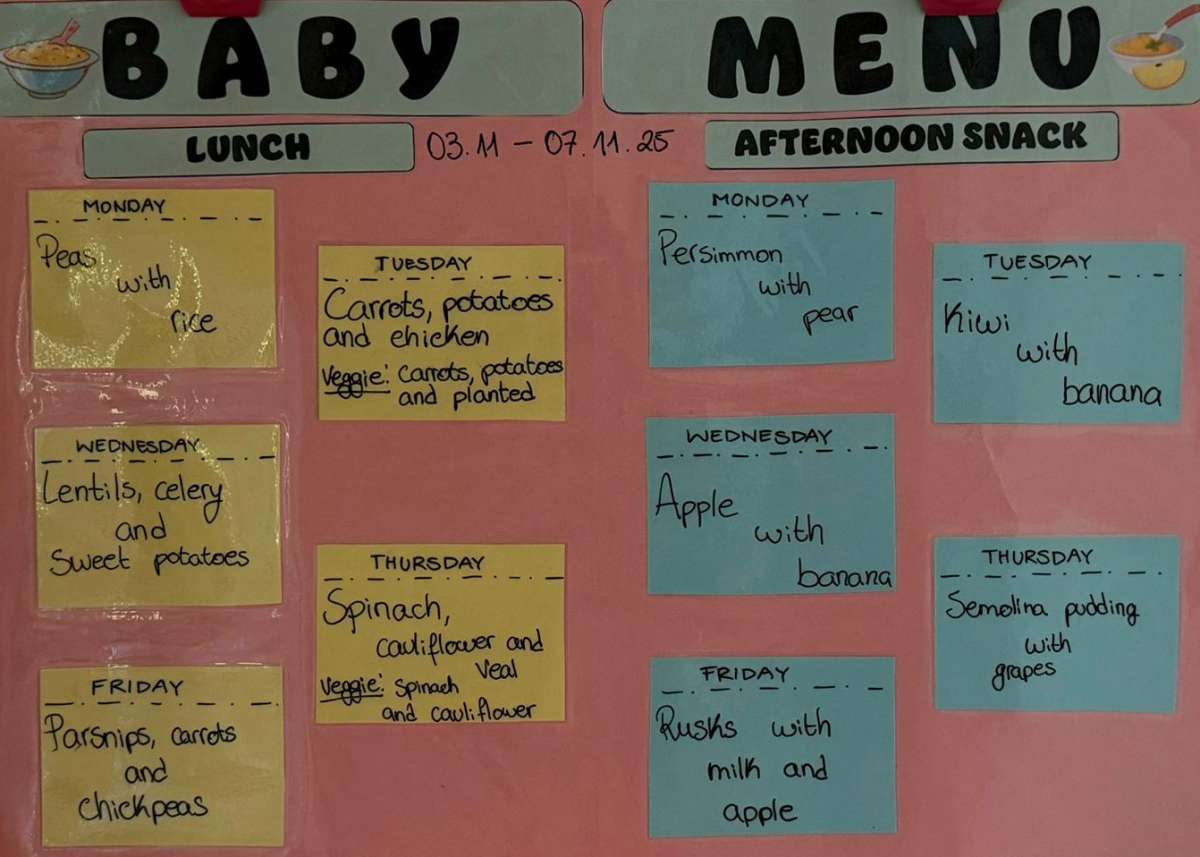 BABY MENU
LUNCH
03.11 – 07.11.25
AFTERNOON SNACK
MONDAY
Peas
with
rice
TUESDAY
Carrots, potatoes
and chicken
Veggie: Carrots, potatoes
and planted
WEDNESDAY
Lentils, celery
and
Sweet potatoes
THURSDAY
Spinach,
cauliflower and
veal
Veggie: Spinach
and cauliflower
FRIDAY
Parsnips, carrots
and
chickpeas
MONDAY
Persimmon
with
pear
TUESDAY
Kiwi
with
banana
WEDNESDAY
Apple
with
banana
THURSDAY
Semolina pudding
with
grapes
FRIDAY
Rusks with
milk and
apple